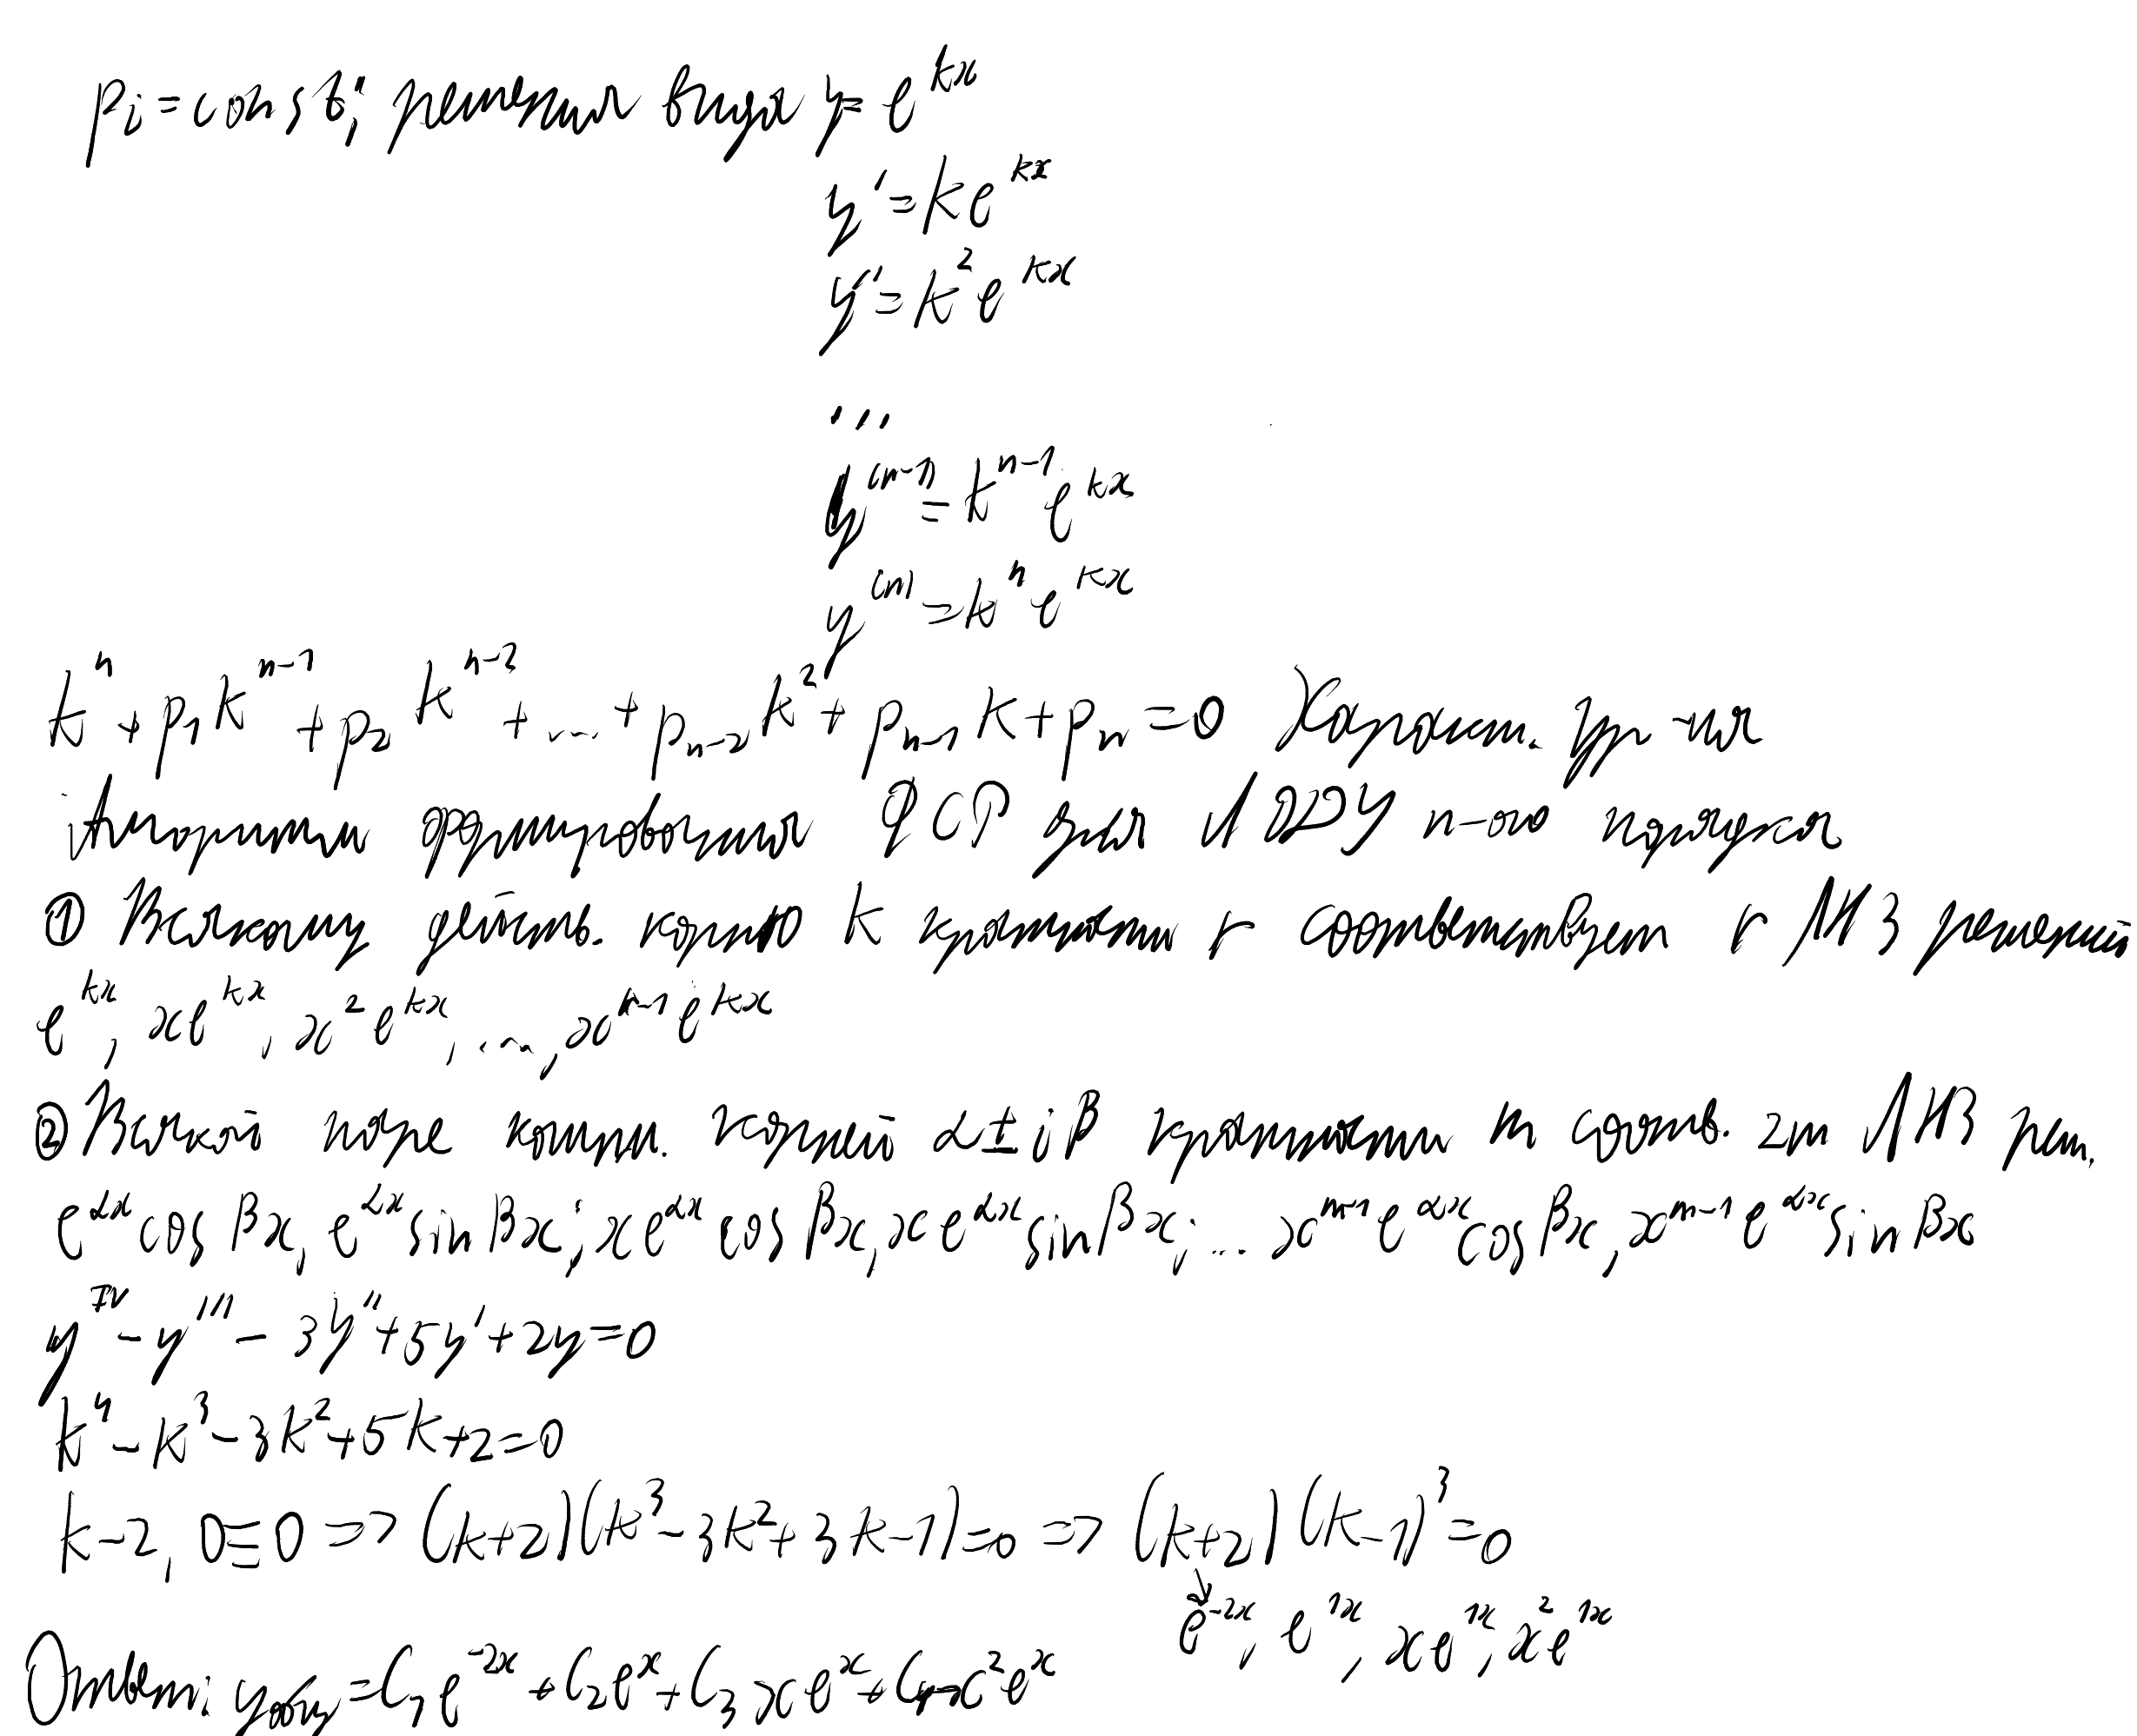 pᵢ = const; решения вида y = e^{kx}
y' = ke^{kx}
y'' = k²e^{kx}
...
y^{(n-1)} = k^{n-1}e^{kx}
y^{(n)} = k^n e^{kx}
k^n + p₁k^{n-1} + p₂k^{n-2} + ... + p_{n-2}k² + p_{n-1}k + p_n = 0 Характ. ур-ия
Алгоритм формирования ФСР для ЛОДУ n-ого порядка
① Всякому действ. корню k кратности r соответствует r ЛНЗ решений
e^{kx}, xe^{kx}, x²e^{kx}, ..., x^{r-1}e^{kx}
② Всякой паре компл. корней α±iβ кратности m соотв. 2m ЛНЗ реш.
e^{αx}cos βx, e^{αx}sin βx; xe^{αx}cos βx, xe^{αx}sin βx; ... x^{m-1}e^{αx}cos βx, x^{m-1}e^{αx}sin βx
y^{IV} - y''' - 3y'' + 5y' + 2y = 0
k⁴ - k³ - 3k² + 5k + 2 = 0
k-2, 0≡0 => (k+2)(k³-3k²+3k-1)=0 => (k+2)(k-1)³=0
e^{-2x}, e^{1x}, xe^{1x}, x²e^{1x}
Ответ: y_{общ} = C₁e^{-2x} + C₂e^x + C₃xe^x + C₄x²e^x